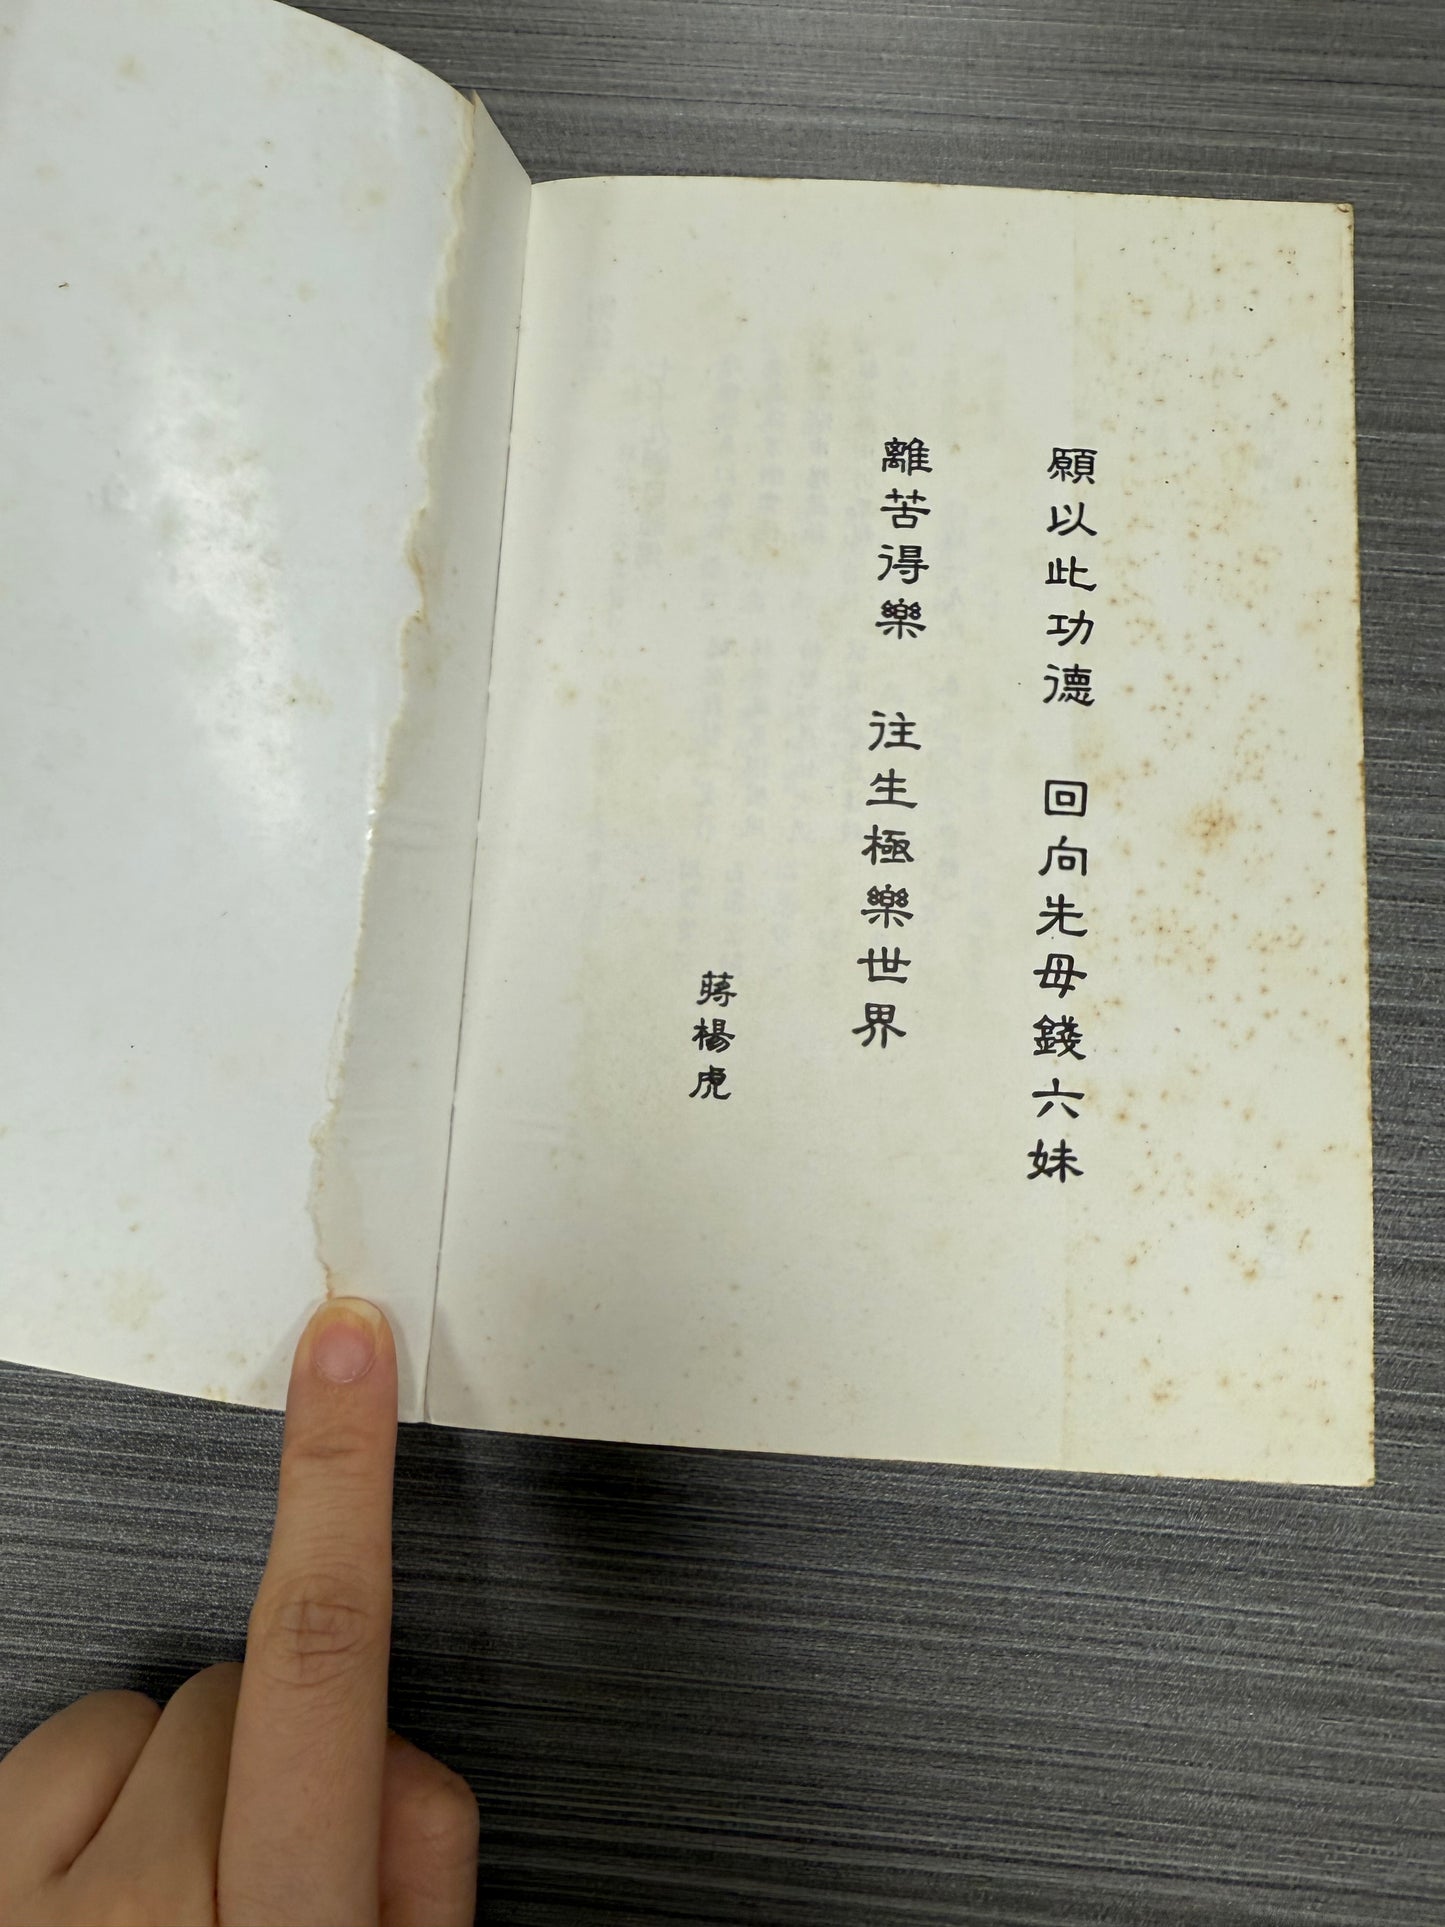 願以此功德 回向先母錢六妹
離苦得樂 往生極樂世界
蔣楊虎